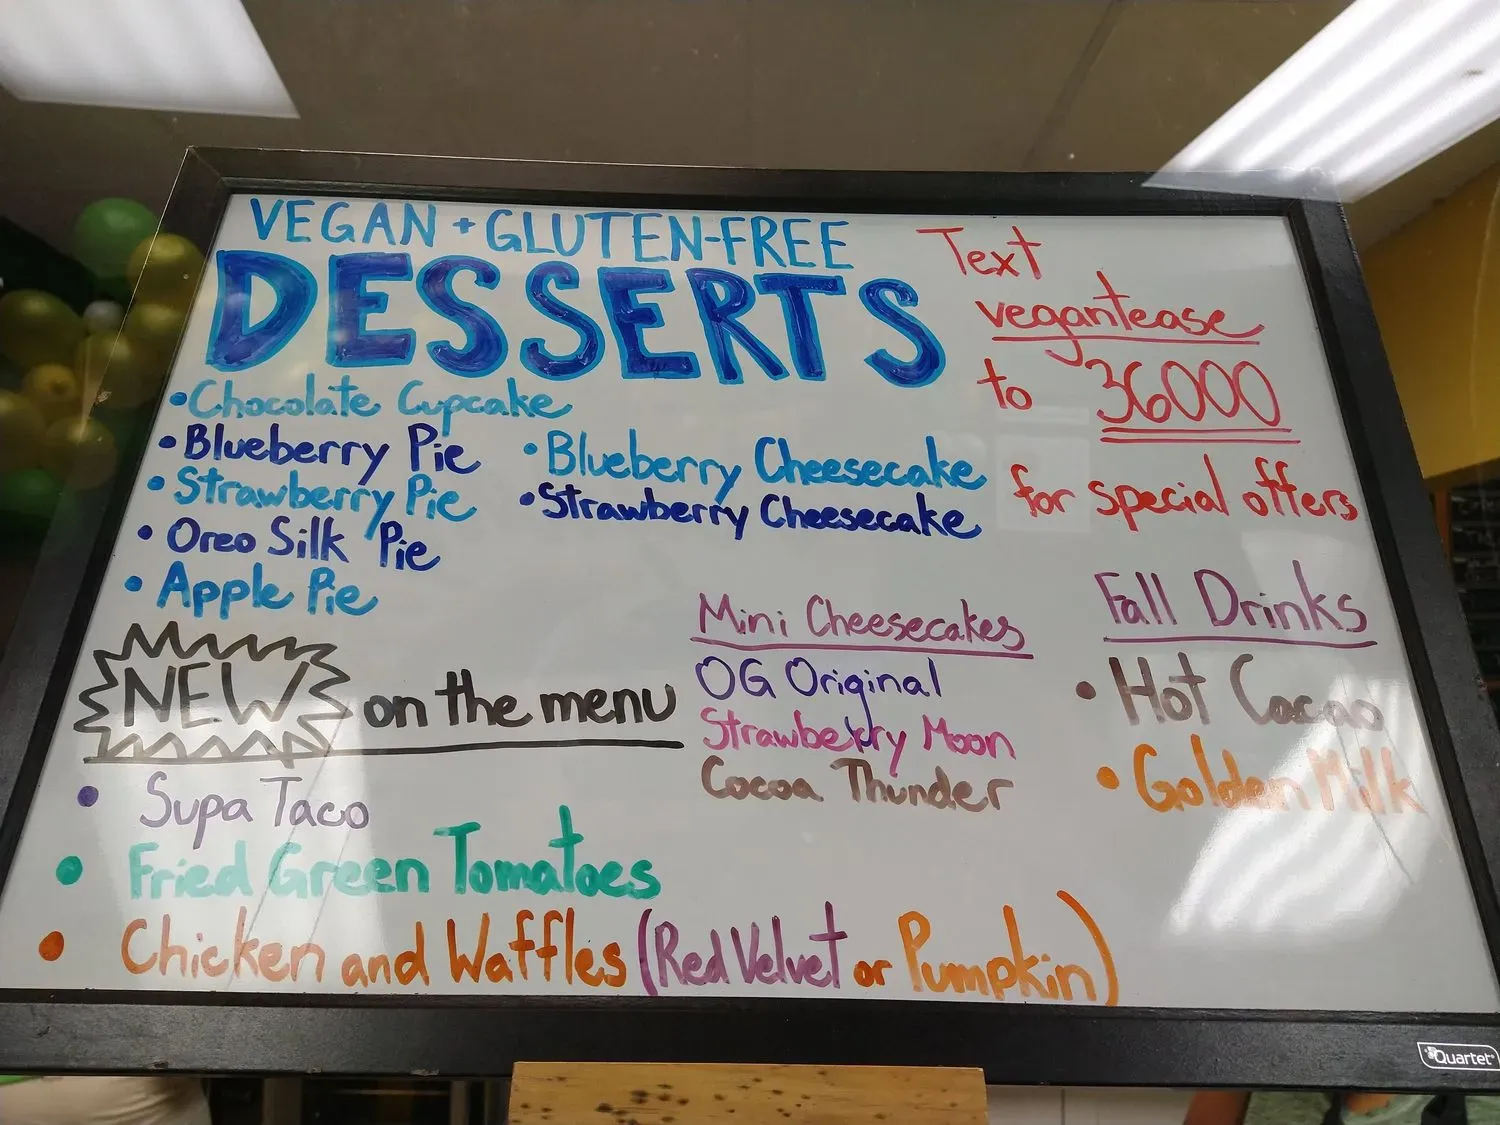 VEGAN + GLUTEN-FREE
DESSERTS
• Chocolate Cupcake
• Blueberry Pie
• Strawberry Pie
• Oreo Silk Pie
• Apple Pie
• Blueberry Cheesecake
• Strawberry Cheesecake
Text
vegantease
to 36000
for special offers
NEW on the menu
• Supa Taco
• Fried Green Tomatoes
• Chicken and Waffles (Red Velvet or Pumpkin)
Mini Cheesecakes
OG Original
Strawberry Moon
Cocoa Thunder
Fall Drinks
• Hot Cocao
• Golden Milk
Quartet